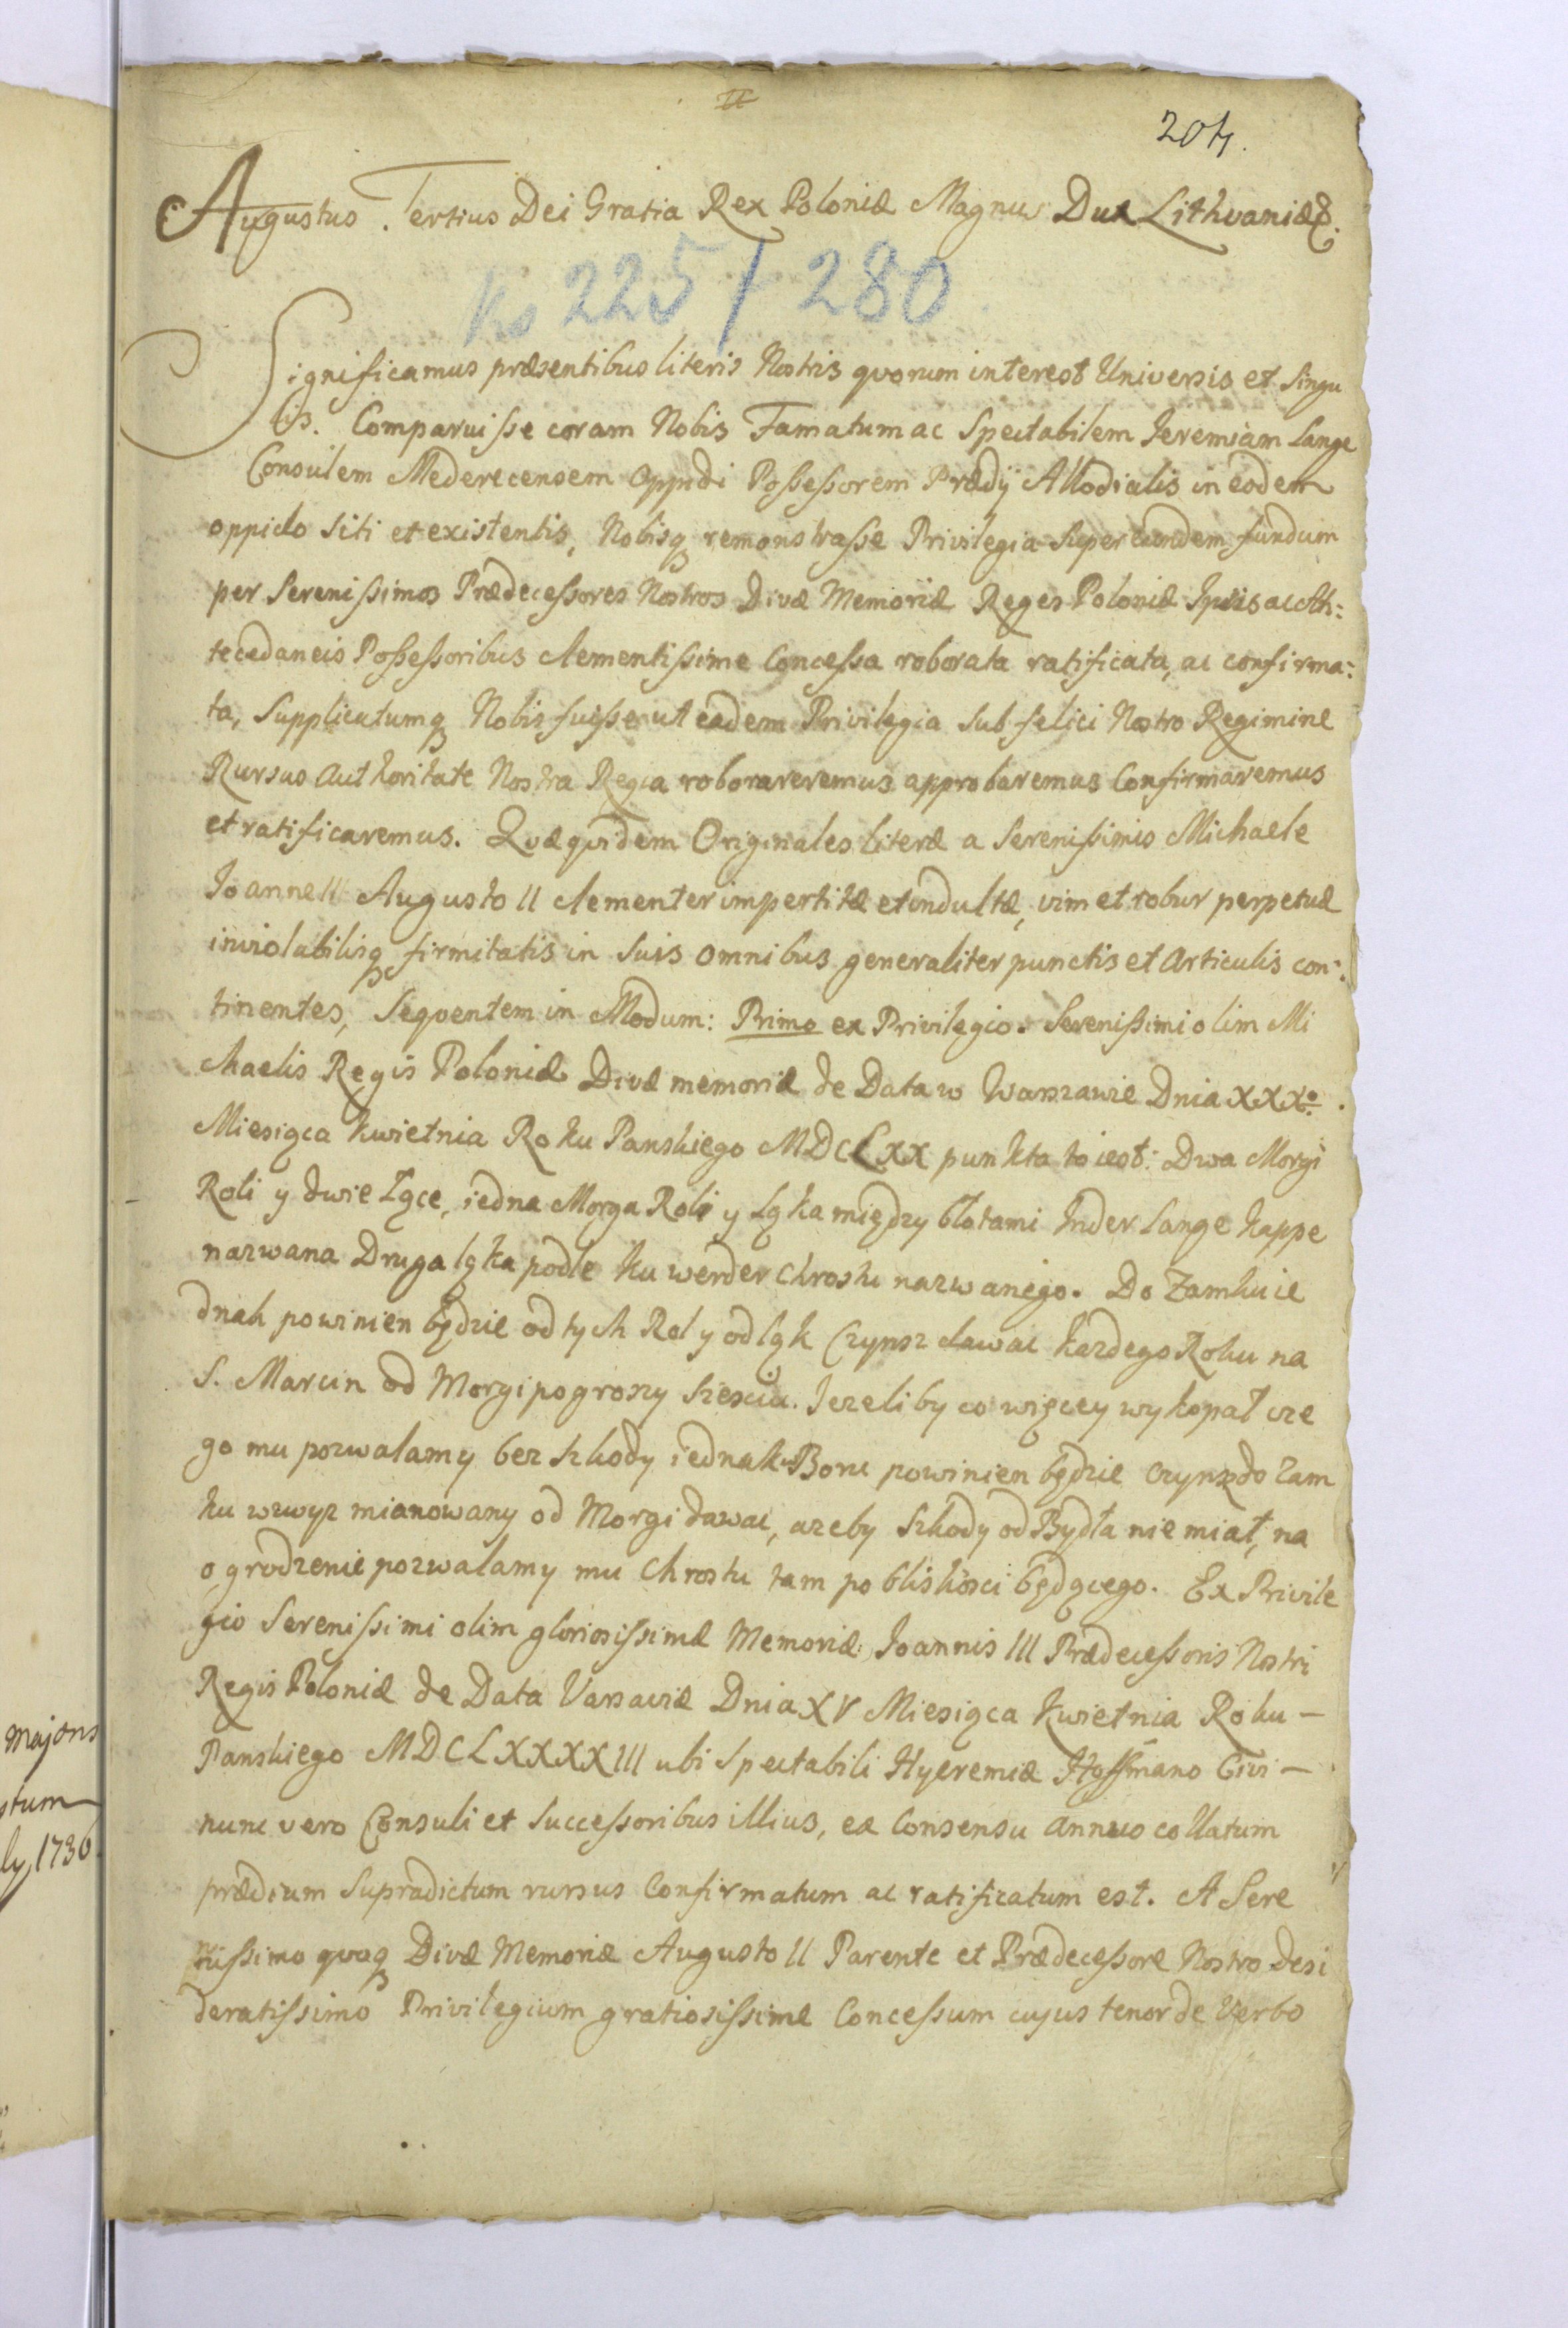 204.
Augustus Tertius Dei Gratia Rex Poloniæ Magnus Dux Lithvaniæ &.
Ks 225/280
Significamus præsentibus literis Nostris qvorum interest Universis et Singu
lis. Comparuisse coram Nobis Famatum ac Spectabilem Jeremiam Lange
Consulem Mederecensem Oppidi Possessorem Prædÿ Allodialis in eodem
oppido siti et existentis, Nobisq remonstrasse Privilegia super eundem fundum
per Serenissimos Prædecessores Nostros Divæ Memoriæ Reges Poloniæ Ipsis ac An:
tecedaneis Possessoribus clementissime Concessa roborata ratificata, ac confirma:
ta, Supplicatumq Nobis fuisse ut eadem Privilegia Sub felici Nostro Regimine
Rursus Authoritate Nostra Regia roborareremus approbaremus Confirmaremus
et ratificaremus. Qvæ qvidem Originales literæ a Serenissimis Michaele
Joanne III Augusto II clementer impertitæ et indultæ, vim et robur perpetuæ
inviolabilisq firmitatis in Suis omnibus generaliter punctis et Articulis con:
tinentes, Seqventem in Modum: Primo ex Privilegio. Serenissimi olim Mi
chaelis Regis Poloniæ Divæ memoriæ de Data w Warszawie Dnia XXXo.
Miesiąca Kwietnia Roku Panskiego MDCLXX punkta to iest: Dwa Morgi
Roli y dwie Łące, iedna Morga Roli y Łąka między błotami Inder Lange kappe
nazwana Druga łąka podle Ku werder Chrostu nazwanego. Do Zamku ie
dnak powinien będzie od tych Rol y od łąk Czynsz dawac kazdego Roku na
S. Marcin od Morgi po groszy szesciu. Jezeli by co więcey wykopał cze
go mu pozwalamy bez szkody iednak Boru powinien będzie czynsz do Zam
ku wzwyz mianowany od Morgi dawac, azeby szkody od Bydła nie miał, na
ogrodzenie pozwalamy mu Chrostu tam po bliskosci będącego. Ex Privile
gio Serenissimi olim gloriosissimæ Memoriæ Joannis III Prædecessoris Nostri
Regis Poloniæ de Data Varsaviæ Dnia XV Miesiąca Kwietnia Roku –
Panskiego MDCLXXXXIII ubi Spectabili Hyeremiæ Hoffmano Civi –
nunc vero Consuli et Successoribus illius, ex Consensu annuo collatum
prædium Supradictum rursus Confirmatum ac ratificatum est. A Sere
nissimo qvoq Divæ Memoriæ Augusto II Parente et Prædecessore Nostro desi
deratissimo Privilegium gratiosissime Concessum cujus tenor de Verbo
majoris
stum
ly, 1736.